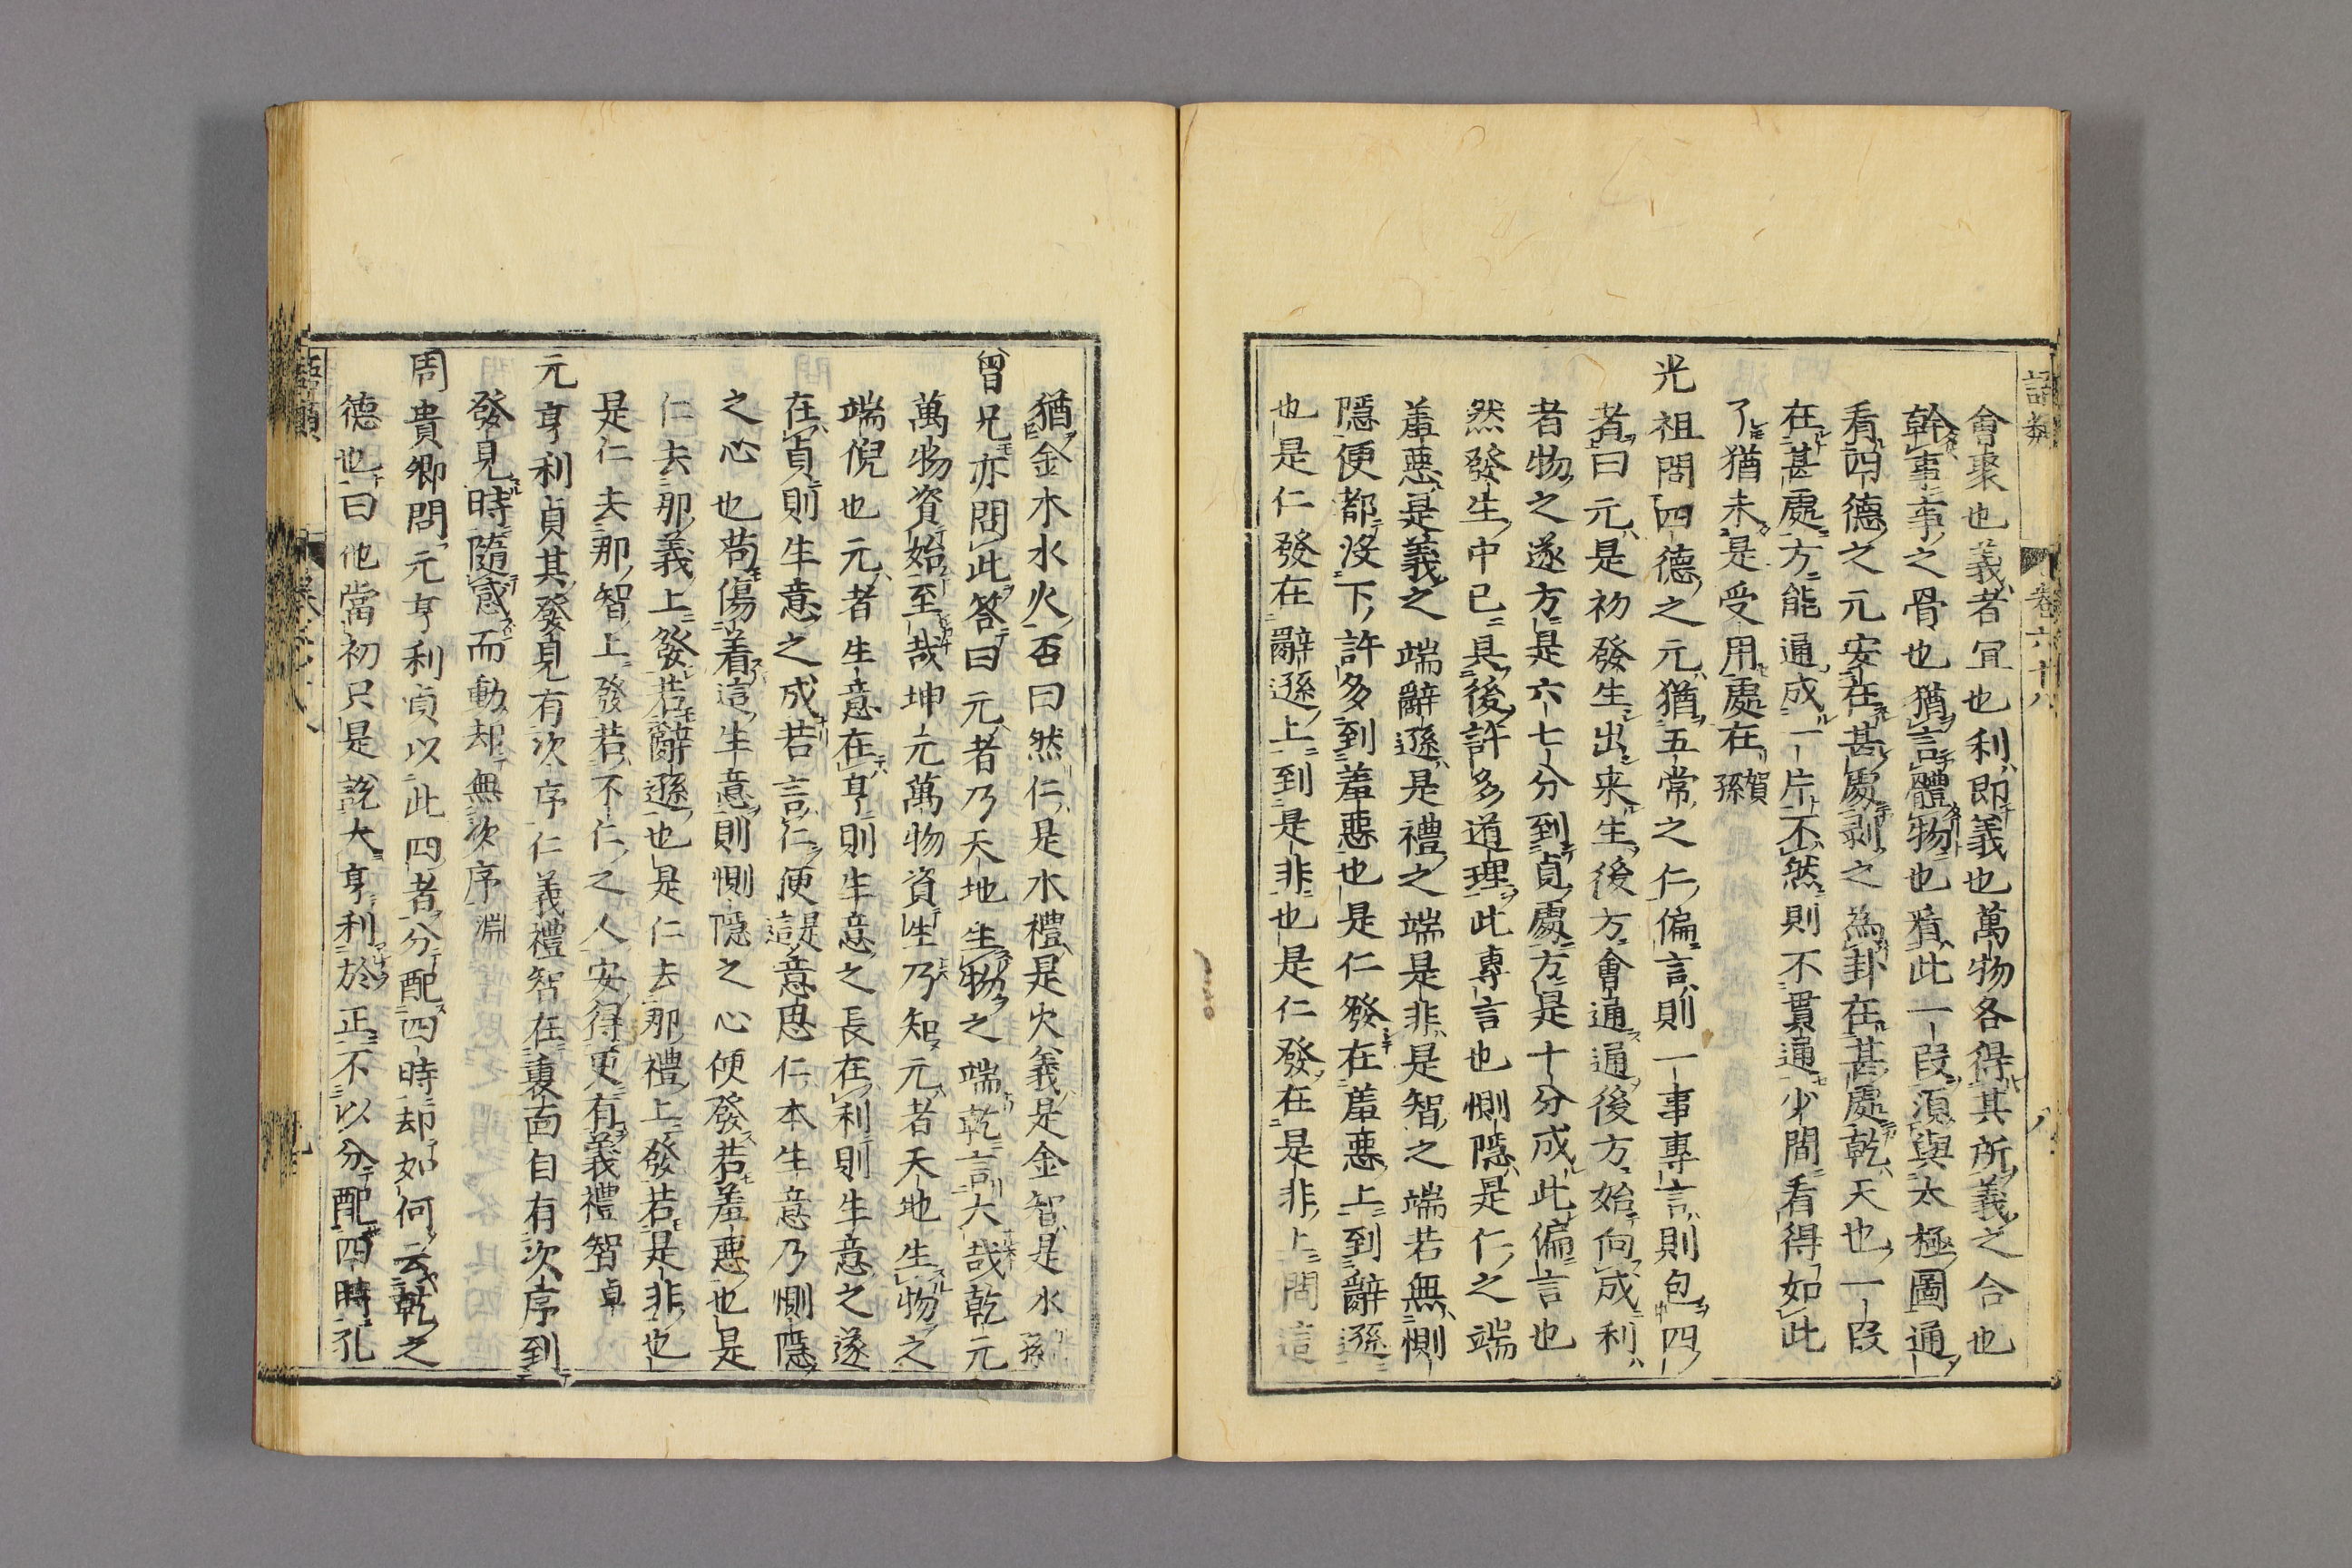 語類 卷六十八 八
會聚也義者宜也利即義也萬物各得其所義之合也
幹事事之骨也猶言體物也看此一段須與太極圖通
看四德之元安在甚處剥之為卦在甚處乾天也一段
在甚處方能通成一片不然則不貫通少間看得如此
了猶未是受用處在賀孫
光祖問四德之元猶五常之仁偏言則一事專言則包四
者曰元是初發生出来生後方會通通後方始向成利
者物之遂方是六七分到貞處方是十分成此偏言也
然發生中已具後許多道理此專言也惻隱是仁之端
羞惡是義之端辭遜是禮之端是非是智之端若無惻
隱便都沒下許多到羞惡也是仁發在羞惡上到辭遜
也是仁發在辭遜上到是非也是仁發在是非上問這
猶金木水火否曰然仁是木禮是火義是金智是水孫
曾兄亦問此答曰元者乃天地生物之端乾言大哉乾元
萬物資始至哉坤元萬物資生乃知元者天地生物之
端倪也元者生意在亨則生意之長在利則生意之遂
在貞則生意之成若言仁便是這意思仁本生意乃惻隱
之心也苟傷着這生意則惻隱之心便發若羞惡也是
仁去那義上發若辭遜也是仁去那禮上發若是非也
是仁去那智上發若不仁之人安得更有義禮智卓
元亨利貞其發見有次序仁義禮智在裏面自有次序到
發見時隨感而動却無次序淵
周貴卿問元亨利貞以此四者分配四時却如何云乾之
德也曰他當初只是說大亨利於正不以分配四時孔
語類 九